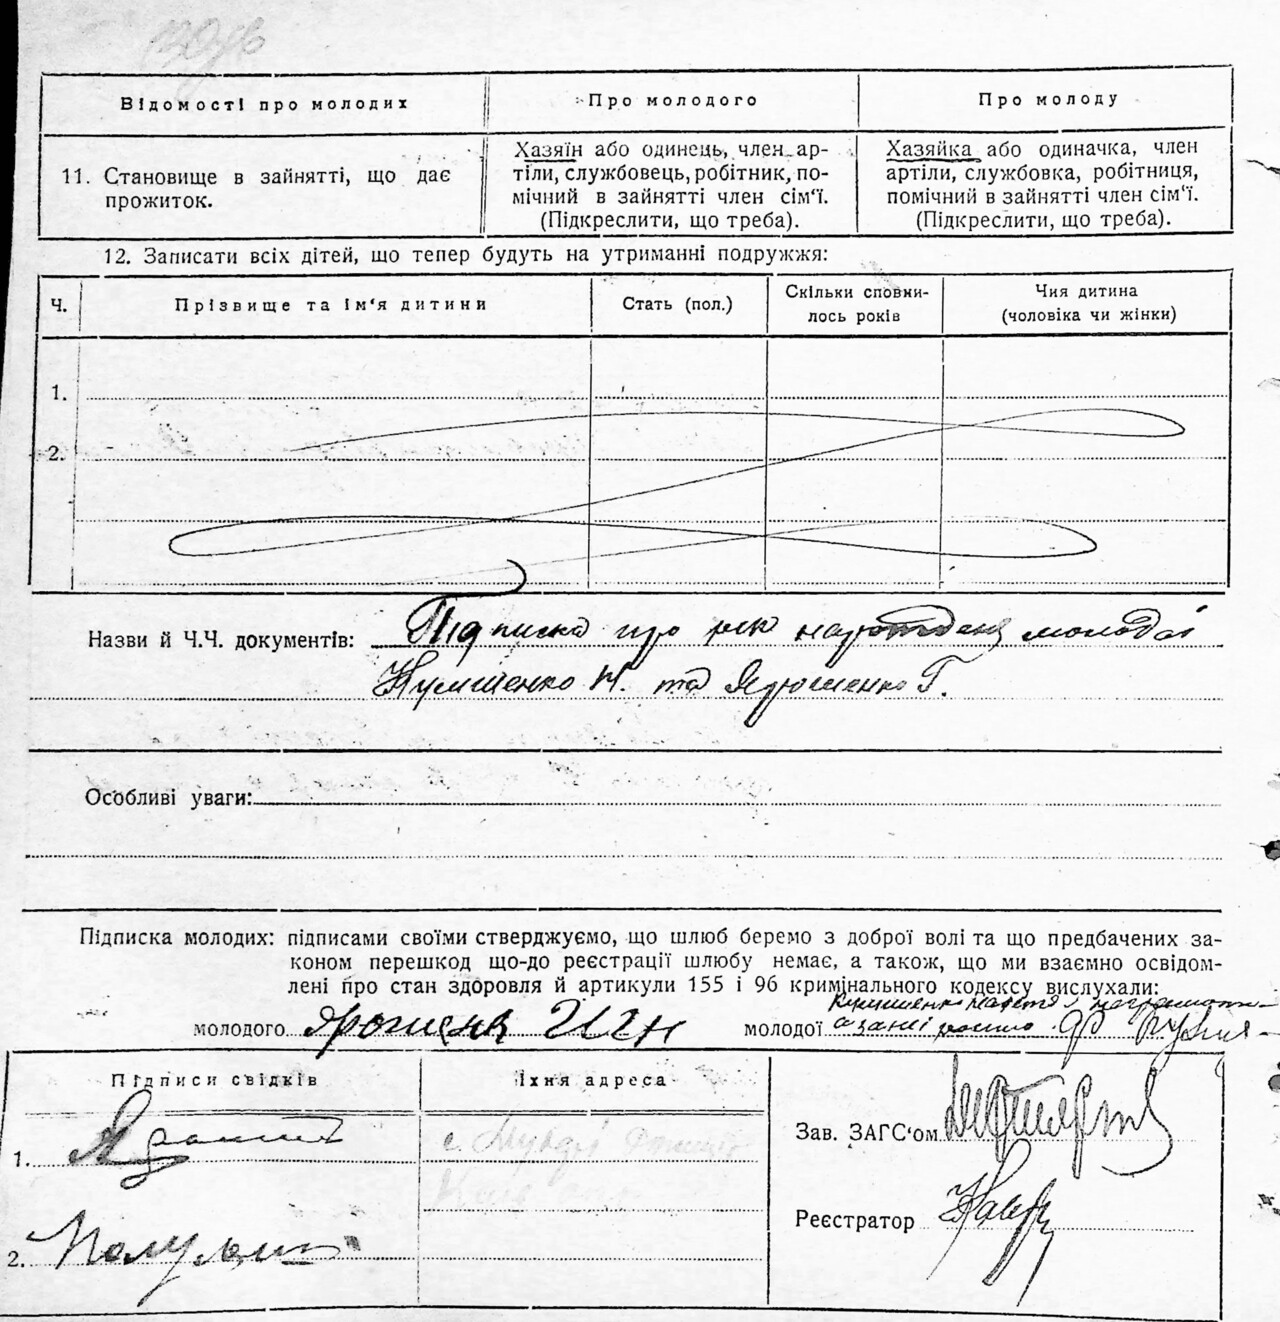 Відомості про молодих
Про молодого
Про молоду
11. Становище в зайнятті, що дає
прожиток.
Хазяїн або одинець, член ар-
тілі, службовець, робітник, по-
мічний в зайнятті член сім'ї.
(Підкреслити, що треба).
Хазяйка або одиначка, член
артілі, службовка, робітниця,
помічний в зайнятті член сім'ї.
(Підкреслити, що треба).
12. Записати всіх дітей, що тепер будуть на утриманні подружжя:
Ч.
Прізвище та ім'я дитини
Стать (пол.)
Скільки сповни-
лось років
Чия дитина
(чоловіка чи жінки)
1.
2.
Назви й Ч.Ч. документів: Підписка про рік народження молодої
та Г.
Особливі уваги:
Підписка молодих: підписами своїми стверджуємо, що шлюб беремо з доброї волі та що предбачених за-
коном перешкод що-до реєстрації шлюбу немає, а також, що ми взаємно освідом-
лені про стан здоровля й артикули 155 і 96 кримінального кодексу вислухали:
молодого
молодої
Підписи свідків
Їхня адреса
1.
2.
Зав. ЗАГС'ом
Реєстратор